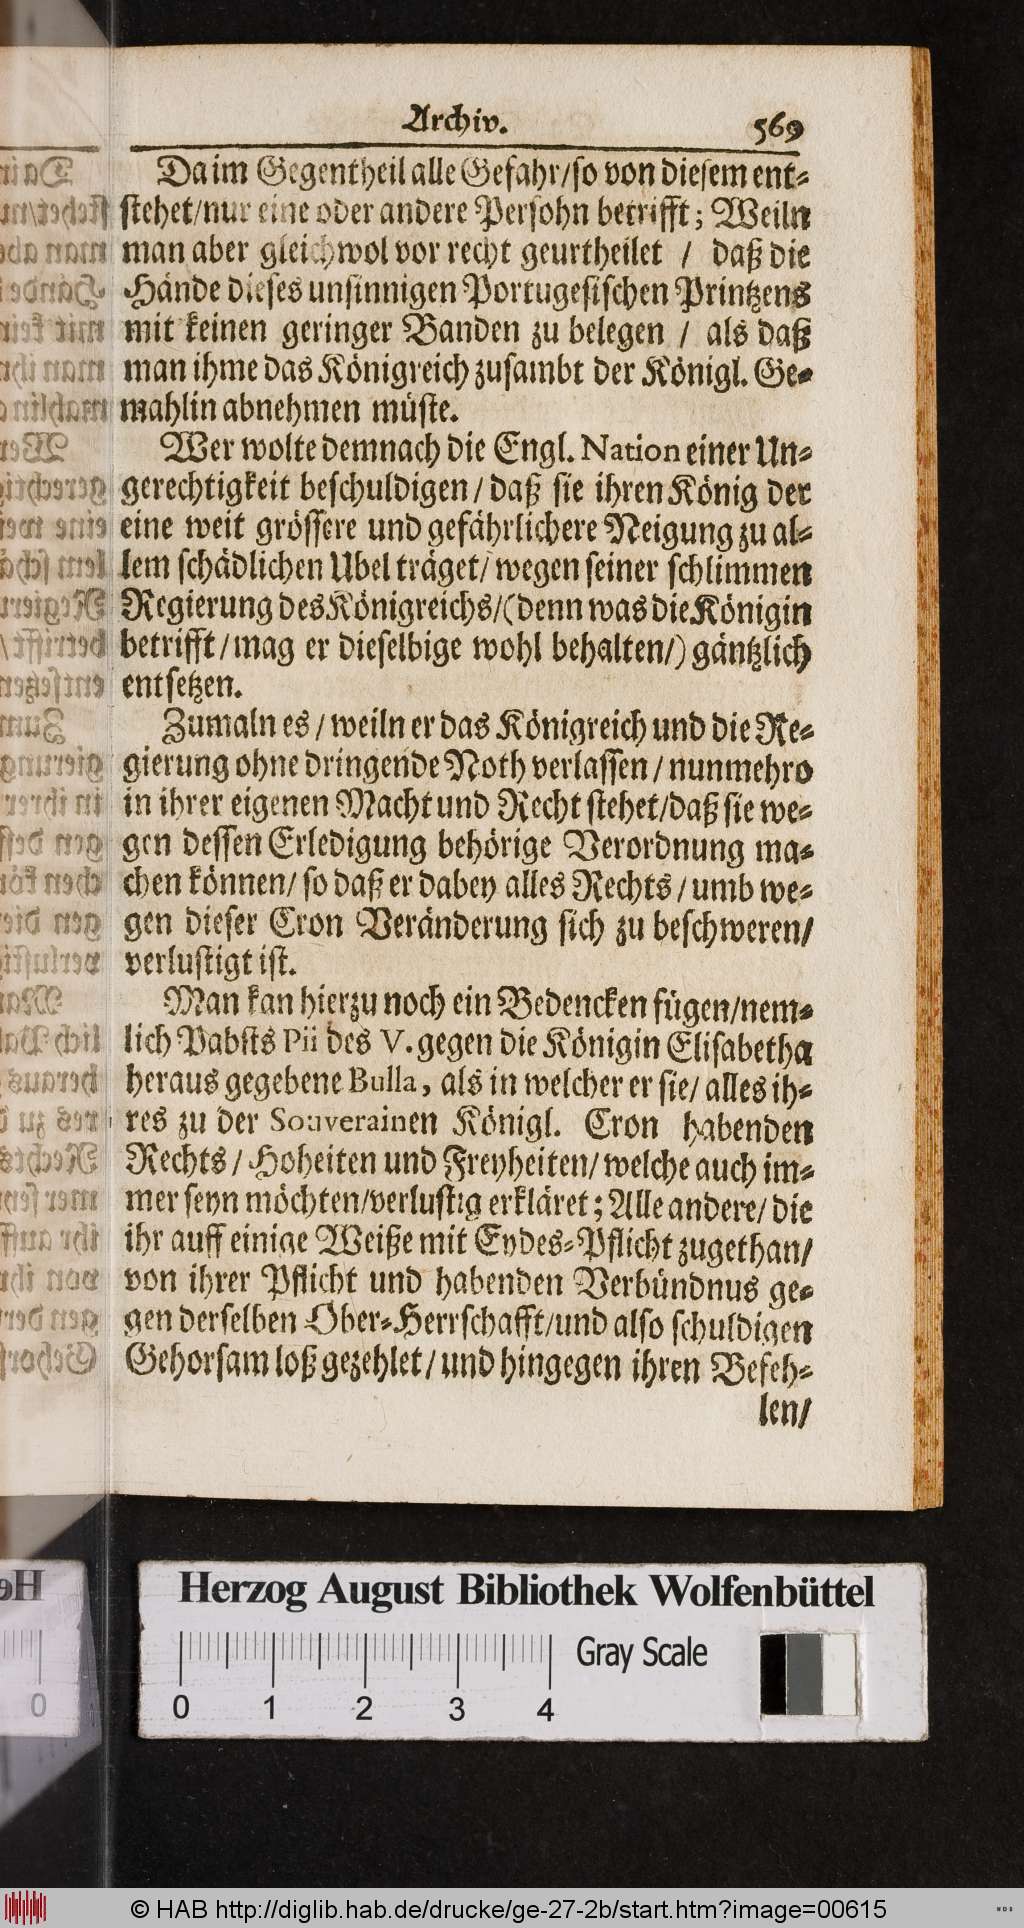 Archiv. 569
Da im Gegentheil alle Gefahr/so von diesem ent-
stehet/nur eine oder andere Persohn betrifft; Weiln
man aber gleichwol vor recht geurtheilet / daß die
Hände dieses unsinnigen Portugesischen Printzens
mit keinen geringer Banden zu belegen / als daß
man ihme das Königreich zusambt der Königl. Ge-
mahlin abnehmen müste.
Wer wolte demnach die Engl. Nation einer Un-
gerechtigkeit beschuldigen / daß sie ihren König der
eine weit grössere und gefährlichere Neigung zu al-
lem schädlichen Ubel träget/ wegen seiner schlimmen
Regierung des Königreichs/(denn was die Königin
betrifft / mag er dieselbige wohl behalten/) gäntzlich
entsetzen.
Zumaln es / weiln er das Königreich und die Re-
gierung ohne dringende Noth verlassen / nunmehro
in ihrer eigenen Macht und Recht stehet/daß sie we-
gen dessen Erledigung behörige Verordnung ma-
chen können/ so daß er dabey alles Rechts / umb we-
gen dieser Cron Veränderung sich zu beschweren/
verlustigt ist.
Man kan hierzu noch ein Bedencken fügen/nem-
lich Pabsts Pii des V. gegen die Königin Elisabetha
heraus gegebene Bulla, als in welcher er sie/ alles ih-
res zu der Souverainen Königl. Cron habenden
Rechts / Hoheiten und Freyheiten/ welche auch im-
mer seyn möchten/verlustig erkläret; Alle andere/ die
ihr auff einige Weiße mit Eydes-Pflicht zugethan/
von ihrer Pflicht und habenden Verbündnus ge-
gen derselben Ober-Herrschafft/und also schuldigen
Gehorsam loß gezehlet / und hingegen ihren Befeh-
len/
Herzog August Bibliothek Wolfenbüttel
Gray Scale
0 1 2 3 4
© HAB http://diglib.hab.de/drucke/ge-27-2b/start.htm?image=00615